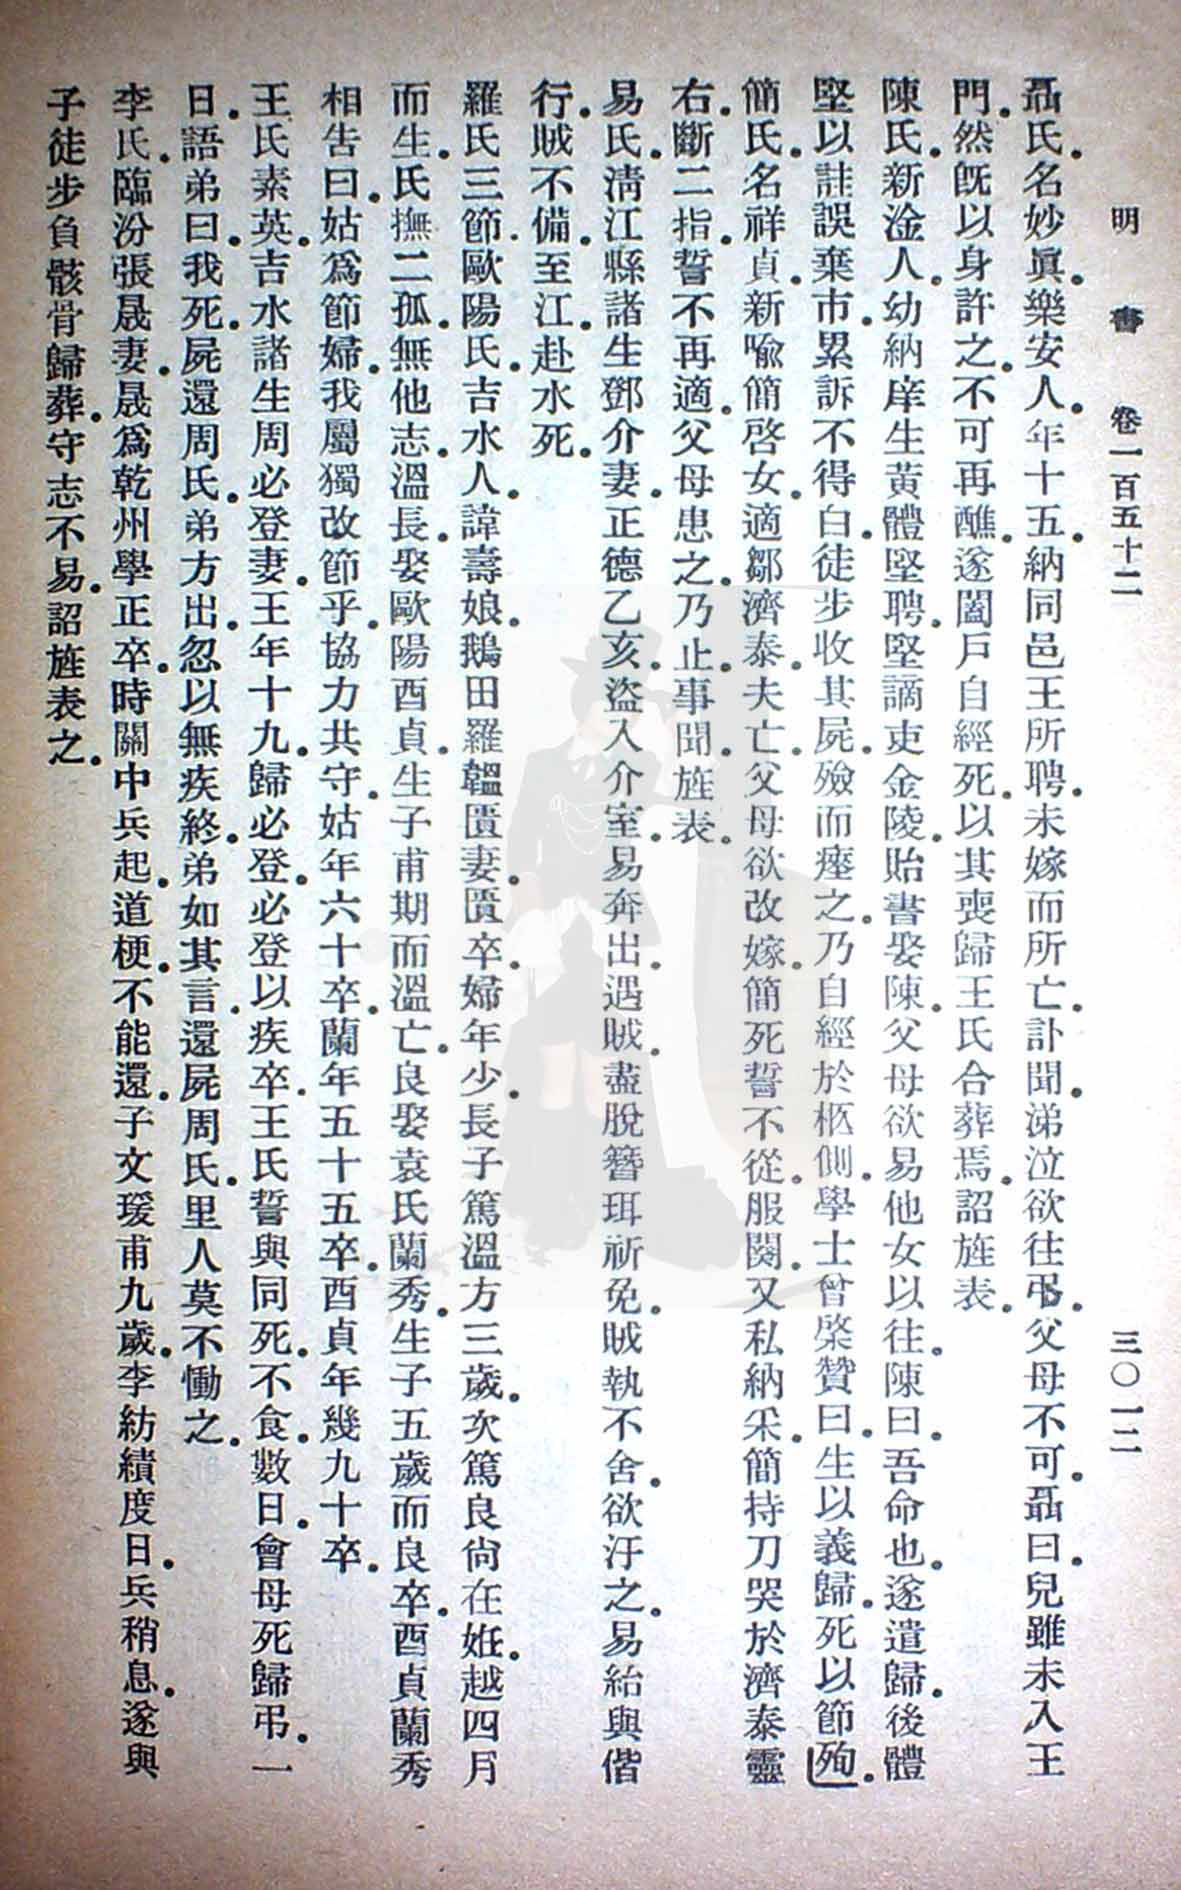 明書 卷一百五十二 三〇一二
聶氏。名妙眞。樂安人。年十五。納同邑王所聘。未嫁而所亡。訃聞。涕泣欲往弔。父母不可。聶曰。兒雖未入王
門。然旣以身許之。不可再醮。遂闔戶自經死。以其喪歸王氏合葬焉。詔旌表。
陳氏。新淦人。幼納庠生黃體堅聘。堅謫吏金陵。貽書娶陳。父母欲易他女以往。陳曰。吾命也。遂遣歸。後體
堅以註誤棄市。累訴不得白。徒步收其屍。殮而瘞之。乃自經於柩側。學士曾棨贊曰。生以義歸。死以節殉。
簡氏。名祥貞。新喩簡啓女。適鄒濟泰。夫亡。父母欲改嫁。簡死誓不從。服闋。又私納采。簡持刀哭於濟泰靈
右。斷二指。誓不再適。父母患之。乃止。事聞。旌表。
易氏。淸江縣諸生鄧介妻。正德乙亥。盜入介室。易奔出。遇賊。盡脫簪珥祈免。賊執不舍。欲汙之。易紿與偕
行。賊不備。至江。赴水死。
羅氏三節。歐陽氏。吉水人。諱壽娘。鵝田羅韞匱妻。匱卒。婦年少。長子篤溫方三歲。次篤良尙在姙。越四月
而生。氏撫二孤。無他志。溫長。娶歐陽酉貞。生子甫期而溫亡。良娶袁氏蘭秀。生子五歲而良卒。酉貞蘭秀
相告曰。姑爲節婦。我屬獨改節乎。協力共守。姑年六十卒。蘭年五十五卒。酉貞年幾九十卒。
王氏素英。吉水諸生周必登妻。王年十九。歸必登。必登以疾卒。王氏誓與同死。不食數日。會母死歸弔。一
日。語弟曰。我死。屍還周氏。弟方出。忽以無疾終。弟如其言。還屍周氏。里人莫不慟之。
李氏。臨汾張晟妻。晟爲乾州學正卒。時關中兵起。道梗。不能還。子文瑗甫九歲。李紡績度日。兵稍息。遂與
子徒步負骸骨歸葬。守志不易。詔旌表之。